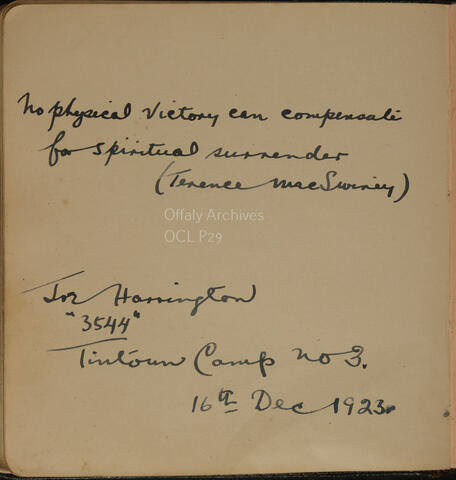 No physical victory can compensate
for spiritual surrender
(Terence MacSwiney)
Offaly Archives
OCL P29
Joe Harrington
"3544"
Tintown Camp no 3.
16th Dec 1923.